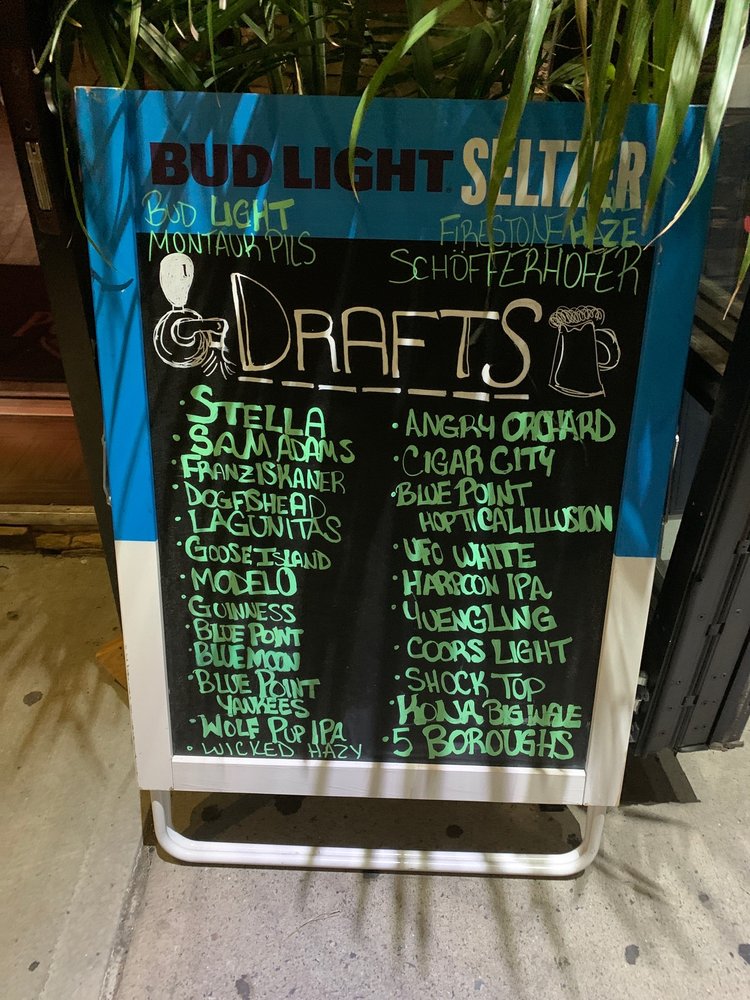 BUD LIGHT SELTZER
BUD LIGHT
MONTAUK PILS
FIRESTONE HAZE
SCHÖFFERHOFER
DRAFTS
· STELLA
· SAM ADAMS
· FRANZISKANER
· DOGFISHEAD
· LAGUNITAS
· GOOSE ISLAND
· MODELO
· GUINNESS
· BLUE POINT
· BLUE MOON
· BLUE POINT
YANKEES
· WOLF PUP IPA
· WICKED HAZY
· ANGRY ORCHARD
· CIGAR CITY
· BLUE POINT
HOPTICAL ILLUSION
· UFO WHITE
· HARPOON IPA
· YUENGLING
· COORS LIGHT
· SHOCK TOP
· KONA BIG WAVE
· 5 BOROUGHS